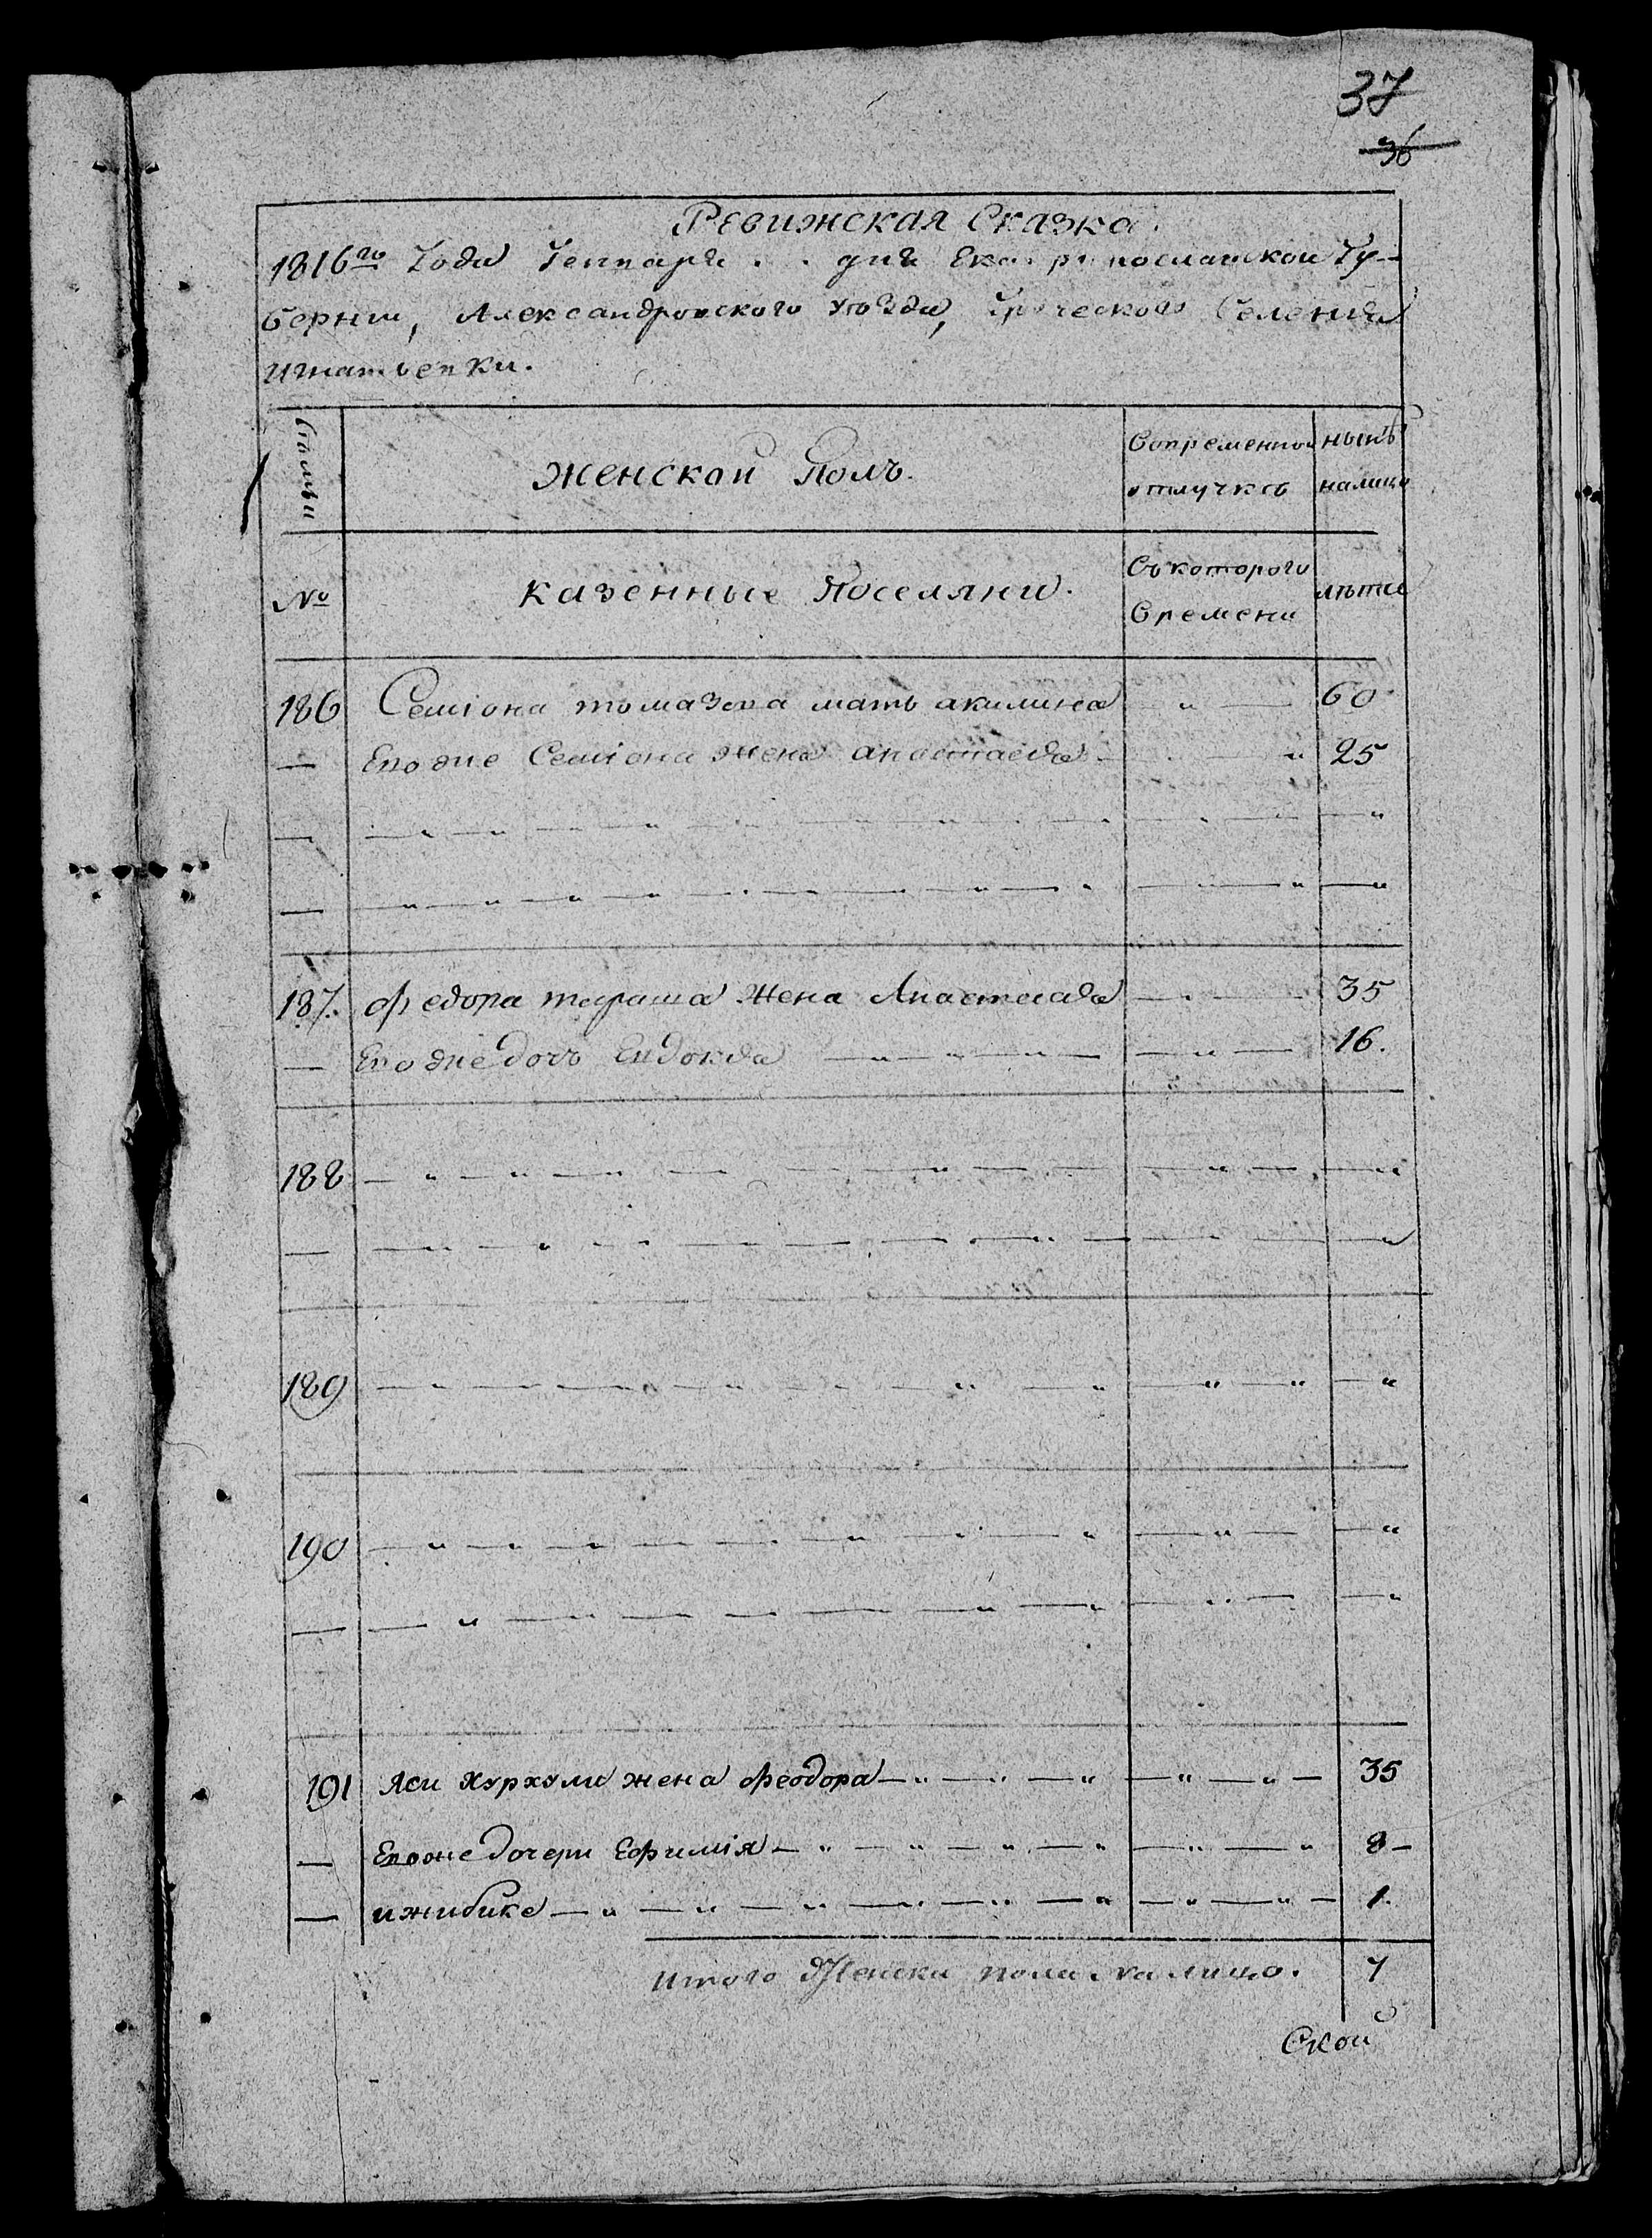 37
36
Ревижская Сказка.
1816го Года Генваря . . дня Екатеринославской Гу-
бернии, Александровского уѣзда, Греческого Селения
Игнатьевки.
Семьи
Женской Полъ.
Вовременной
отлучкѣ
нынѣ
налицо
№
Казенные Поселяни.
Съ которого
времени
лѣта
186 Семiона томазена мать акилина — „ — 60
— Евоже Семiона жена анастасiя — „ 25
187. Федора тараша жена Анастасiя — „ — 35
— Евоже дочь Евдокiя — „ — 16.
188
189
190
191 Яси Хурхули жена Феодора — „ — 35
— Евоже дочери Ефимiя — „ — 8 —
— ижибике — „ — 1.
Итого Женска пола налицо. 7
Ской